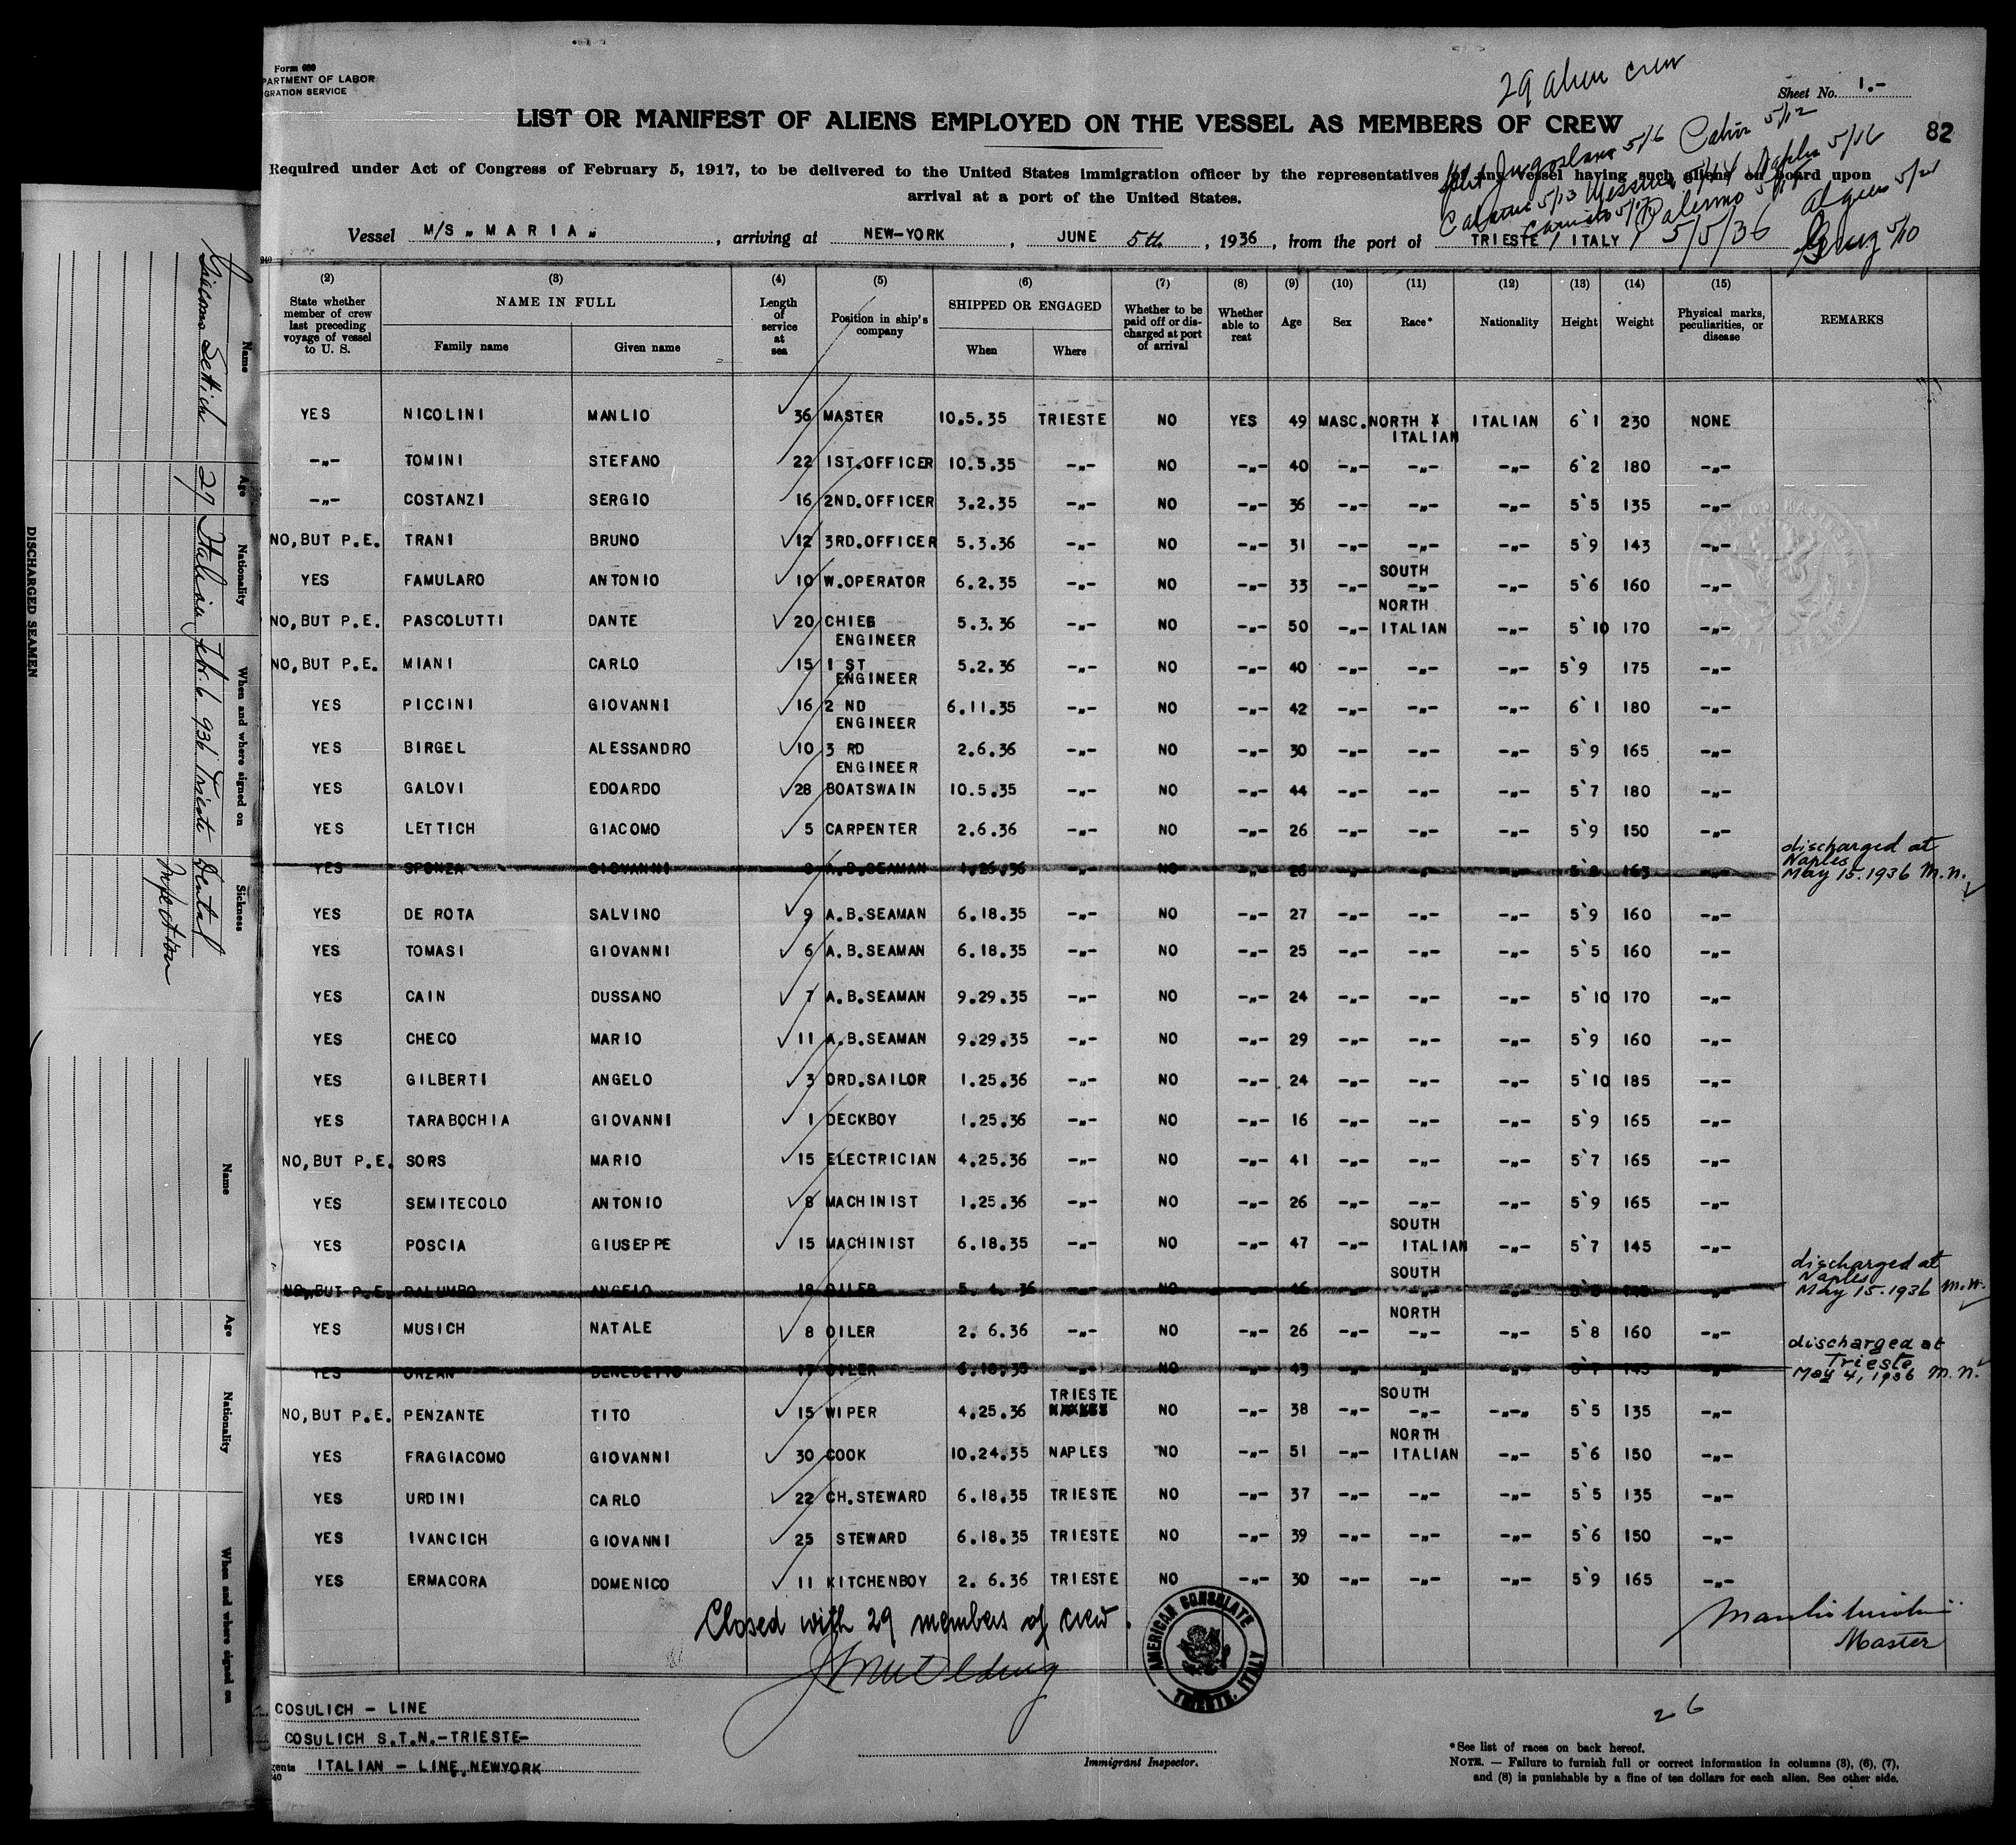 Form 680
PARTMENT OF LABOR
GRATION SERVICE
29 alien crew
Sheet No. 1.-
LIST OR MANIFEST OF ALIENS EMPLOYED ON THE VESSEL AS MEMBERS OF CREW
82
Required under Act of Congress of February 5, 1917, to be delivered to the United States immigration officer by the representatives of any vessel having such aliens on board upon
arrival at a port of the United States.
Split Jugoslavia 5/6
5/12
5/13 Messina 5/14 Naples 5/16
5/17 Palermo
Algiers 5/21
5/10
Vessel M/S „MARIA„, arriving at NEW-YORK, JUNE 5th, 1936, from the port of TRIESTE / ITALY / 5/5/36
(2) (3) (4) (5) (6) (7) (8) (9) (10) (11) (12) (13) (14) (15)
State whether member of crew last preceding voyage of vessel to U. S. | NAME IN FULL Family name Given name | Length of service at sea | Position in ship's company | SHIPPED OR ENGAGED When Where | Whether to be paid off or discharged at port of arrival | Whether able to reat | Age | Sex | Race* | Nationality | Height | Weight | Physical marks, peculiarities, or disease | REMARKS
YES NICOLINI MANLIO 36 MASTER 10.5.35 TRIESTE NO YES 49 MASC. NORTH ITALIAN ITALIAN 6`1 230 NONE
-„- TOMINI STEFANO 22 1ST.OFFICER 10.5.35 -„- NO -„- 40 -„- -„- -„- 6`2 180 -„-
-„- COSTANZI SERGIO 16 2ND.OFFICER 3.2.35 -„- NO -„- 36 -„- -„- -„- 5`5 135 -„-
NO,BUT P.E. TRANI BRUNO 12 3RD.OFFICER 5.3.36 -„- NO -„- 31 -„- -„- -„- 5`9 143 -„-
YES FAMULARO ANTONIO 10 W.OPERATOR 6.2.35 -„- NO -„- 33 -„- SOUTH -„- -„- 5`6 160 -„-
NO,BUT P.E. PASCOLUTTI DANTE 20 CHIEF ENGINEER 5.3.36 -„- NO -„- 50 -„- NORTH ITALIAN -„- 5`10 170 -„-
NO,BUT P.E. MIANI CARLO 15 1 ST ENGINEER 5.2.36 -„- NO -„- 40 -„- -„- -„- 5`9 175 -„-
YES PICCINI GIOVANNI 16 2 ND ENGINEER 6.11.35 -„- NO -„- 42 -„- -„- -„- 6`1 180 -„-
YES BIRGEL ALESSANDRO 10 3 RD ENGINEER 2.6.36 -„- NO -„- 30 -„- -„- -„- 5`9 165 -„-
YES GALOVI EDOARDO 28 BOATSWAIN 10.5.35 -„- NO -„- 44 -„- -„- -„- 5`7 180 -„-
YES LETTICH GIACOMO 5 CARPENTER 2.6.36 -„- NO -„- 26 -„- -„- -„- 5`9 150 -„-
YES SPONZA GIOVANNI A.B.SEAMAN 1.25.36 -„- NO -„- 26 -„- -„- -„- 163 -„- discharged at Naples May 15.1936 M.N.
YES DE ROTA SALVINO 9 A.B.SEAMAN 6.18.35 -„- NO -„- 27 -„- -„- -„- 5`9 160 -„-
YES TOMASI GIOVANNI 6 A.B.SEAMAN 6.18.35 -„- NO -„- 25 -„- -„- -„- 5`5 160 -„-
YES CAIN DUSSANO 7 A.B.SEAMAN 9.29.35 -„- NO -„- 24 -„- -„- -„- 5`10 170 -„-
YES CHECO MARIO 11 A.B.SEAMAN 9.29.35 -„- NO -„- 29 -„- -„- -„- 5`9 160 -„-
YES GILBERTI ANGELO 3 ORD.SAILOR 1.25.36 -„- NO -„- 24 -„- -„- -„- 5`10 185 -„-
YES TARABOCHIA GIOVANNI 1 DECKBOY 1.25.36 -„- NO -„- 16 -„- -„- -„- 5`9 165 -„-
NO,BUT P.E. SORS MARIO 15 ELECTRICIAN 4.25.36 -„- NO -„- 41 -„- -„- -„- 5`7 165 -„-
YES SEMITECOLO ANTONIO 8 MACHINIST 1.25.36 -„- NO -„- 26 -„- -„- -„- 5`9 165 -„-
YES POSCIA GIUSEPPE 15 MACHINIST 6.18.35 -„- NO -„- 47 -„- SOUTH ITALIAN -„- 5`7 145 -„-
NO,BUT P.E. PALUMBO ANGELO 18 OILER 5. 4. 36 -„- NO -„- 46 -„- SOUTH -„- -„- discharged at Naples May 15.1936 M.N.
YES MUSICH NATALE 8 OILER 2. 6.36 -„- NO -„- 26 -„- NORTH -„- -„- 5`8 160 -„-
YES ORZAN BENEDETTO 17 OILER 6.18.35 -„- NO -„- 43 -„- -„- -„- 5`7 145 -„- discharged at Trieste May 4, 1936 M.N.
NO,BUT P.E. PENZANTE TITO 15 WIPER 4.25.36 TRIESTE NO -„- 38 -„- SOUTH -„- -„-„ 5`5 135 -„-
YES FRAGIACOMO GIOVANNI 30 COOK 10.24.35 NAPLES NO -„- 51 -„- NORTH ITALIAN -„- 5`6 150 -„-
YES URDINI CARLO 22 CH.STEWARD 6.18.35 TRIESTE NO -„- 37 -„- -„- -„- 5`5 135 -„-
YES IVANCICH GIOVANNI 25 STEWARD 6.18.35 TRIESTE NO -„- 39 -„- -„- -„- 5`6 150 -„-
YES ERMACORA DOMENICO 11 KITCHENBOY 2. 6.36 TRIESTE NO -„- 30 -„- -„- -„- 5`9 165 -„-
Closed with 29 members of crew.
AMERICAN CONSULATE
TRIESTE, ITALY
Master
COSULICH - LINE
COSULICH S.T.N.-TRIESTE-
gents ITALIAN - LINE, NEWYORK
26
Immigrant Inspector.
*See list of races on back hereof.
NOTE. — Failure to furnish full or correct information in columns (3), (6), (7),
and (8) is punishable by a fine of ten dollars for each alien. See other side.
DISCHARGED SEAMEN
Name Age Nationality When and where signed on Sickness
Giacomo Lettich 27 Italian Feb. 6 936 Trieste Dental
Infection
Name Age Nationality When and where signed on